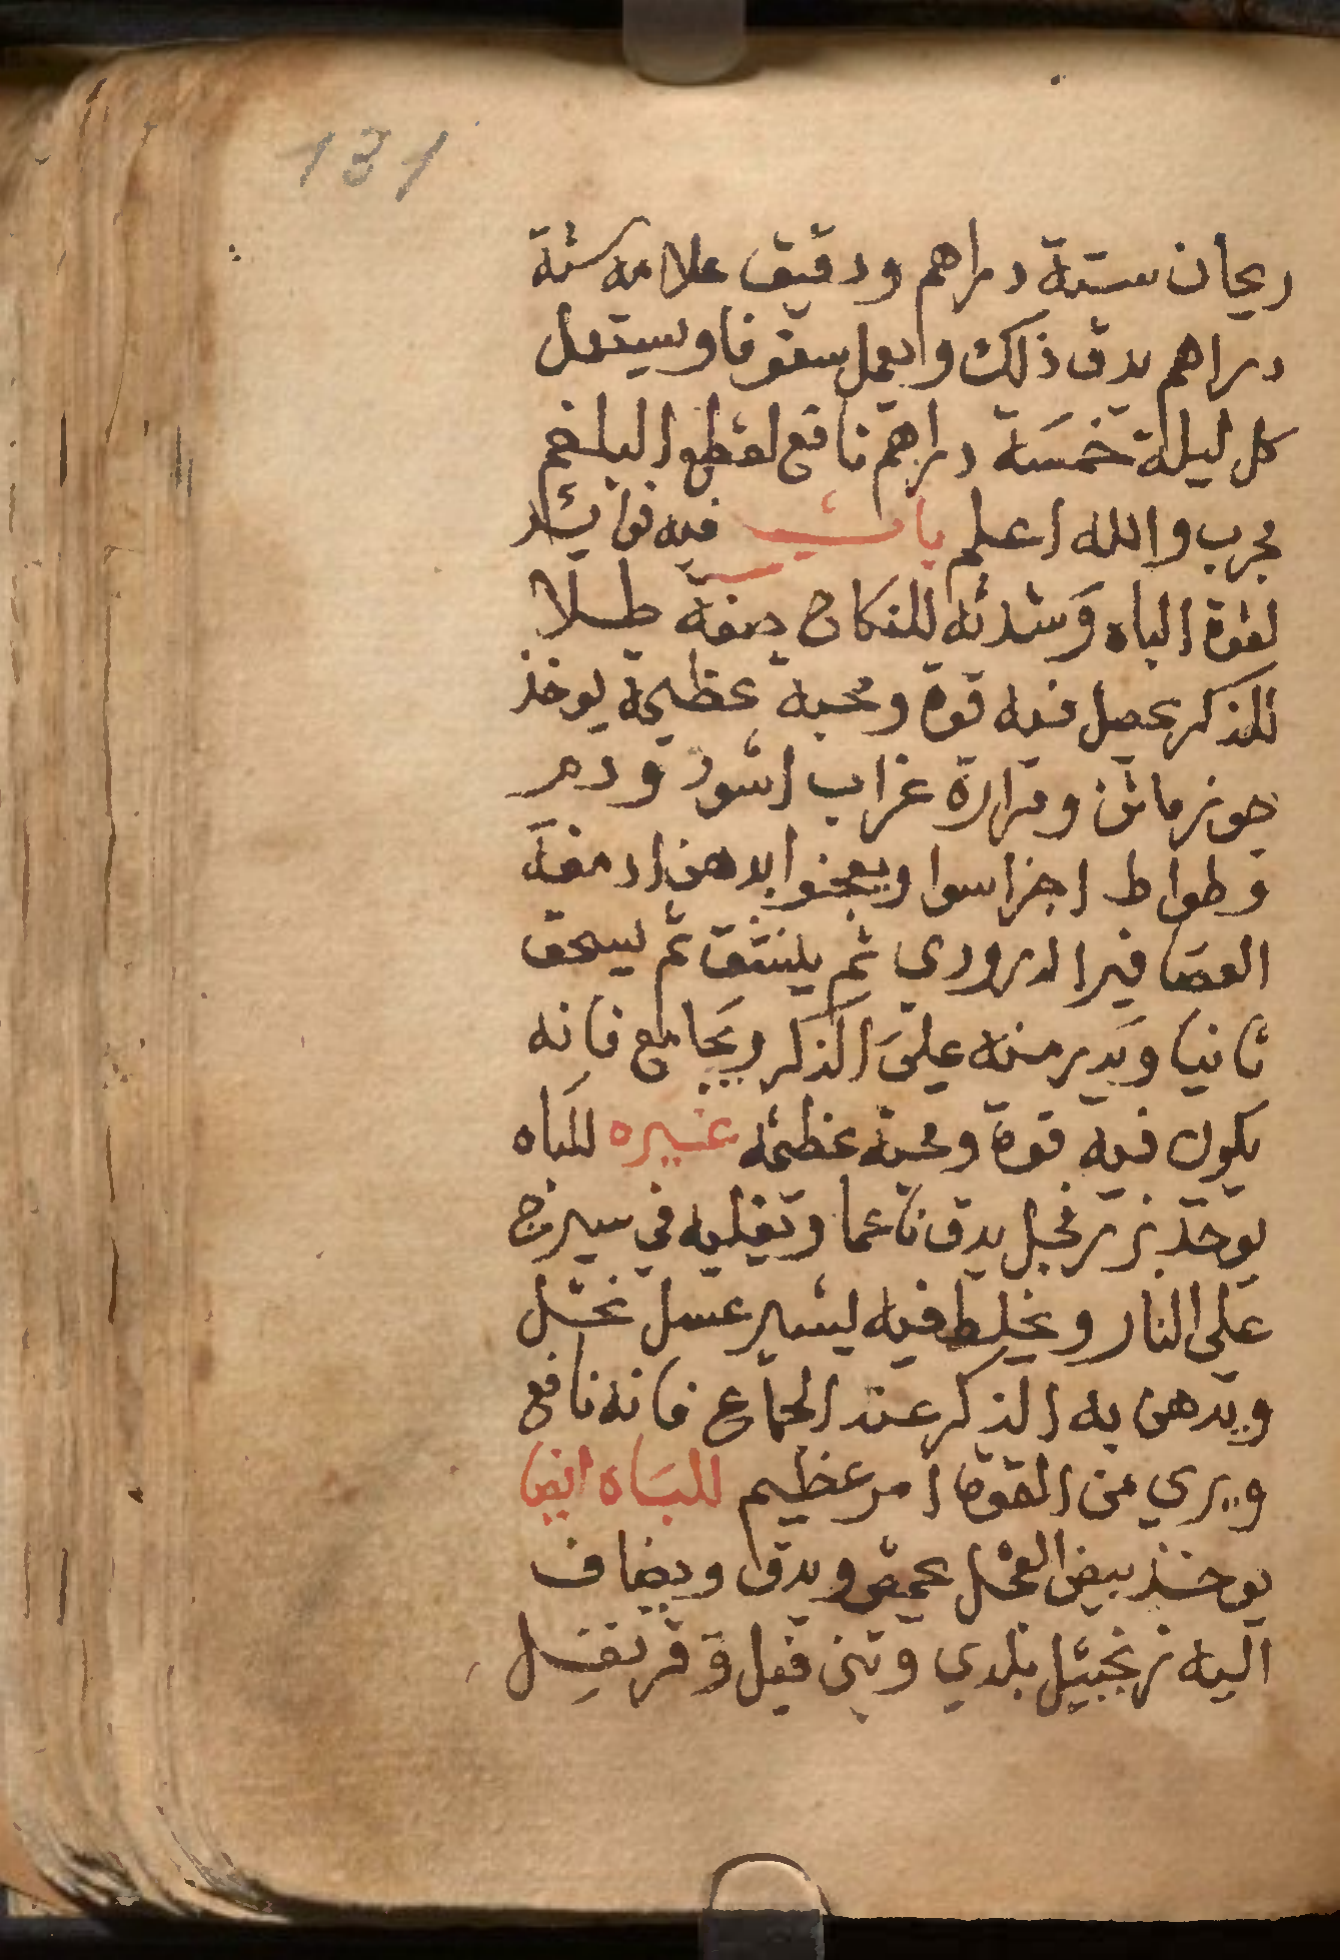 131
ريحان ستة دراهم ودقيق علامه ستة
دراهم يدق ذلك وايعمل سفوفا ويستعمل
كل ليلة خمسة دراهم نافع لقطع البلغم
مجرب والله اعلم باب فيه فوايد
لقوة الباه وشدته للنكاح صفة طلا
للذكر يحصل فيه قوة ومحبة عظيمة يوخذ
جوز ماثن ومرارة غراب اسود ودم
وطواط اجزا سوا ويعجنوا بدهن ادمغة
العصافير الدوري ثم ينشق ثم يسحق
ثانيا ويدر منه على الذكر ويجامع فانه
يكون فيه قوة ومحبة عظيمه غيره للباه
يوخذ بزر فجل يدق ناعما وتغليه في سيرج
على النار ويخلط فيه يسير عسل نحل
ويدهن به الذكر عند الجماع فانه نافع
ويري من القوة امر عظيم للباه ايضا
يوخذ بيض الفحل يحمص ويدق ويضاف
اليه زنجبيل بلدي وقرنفل